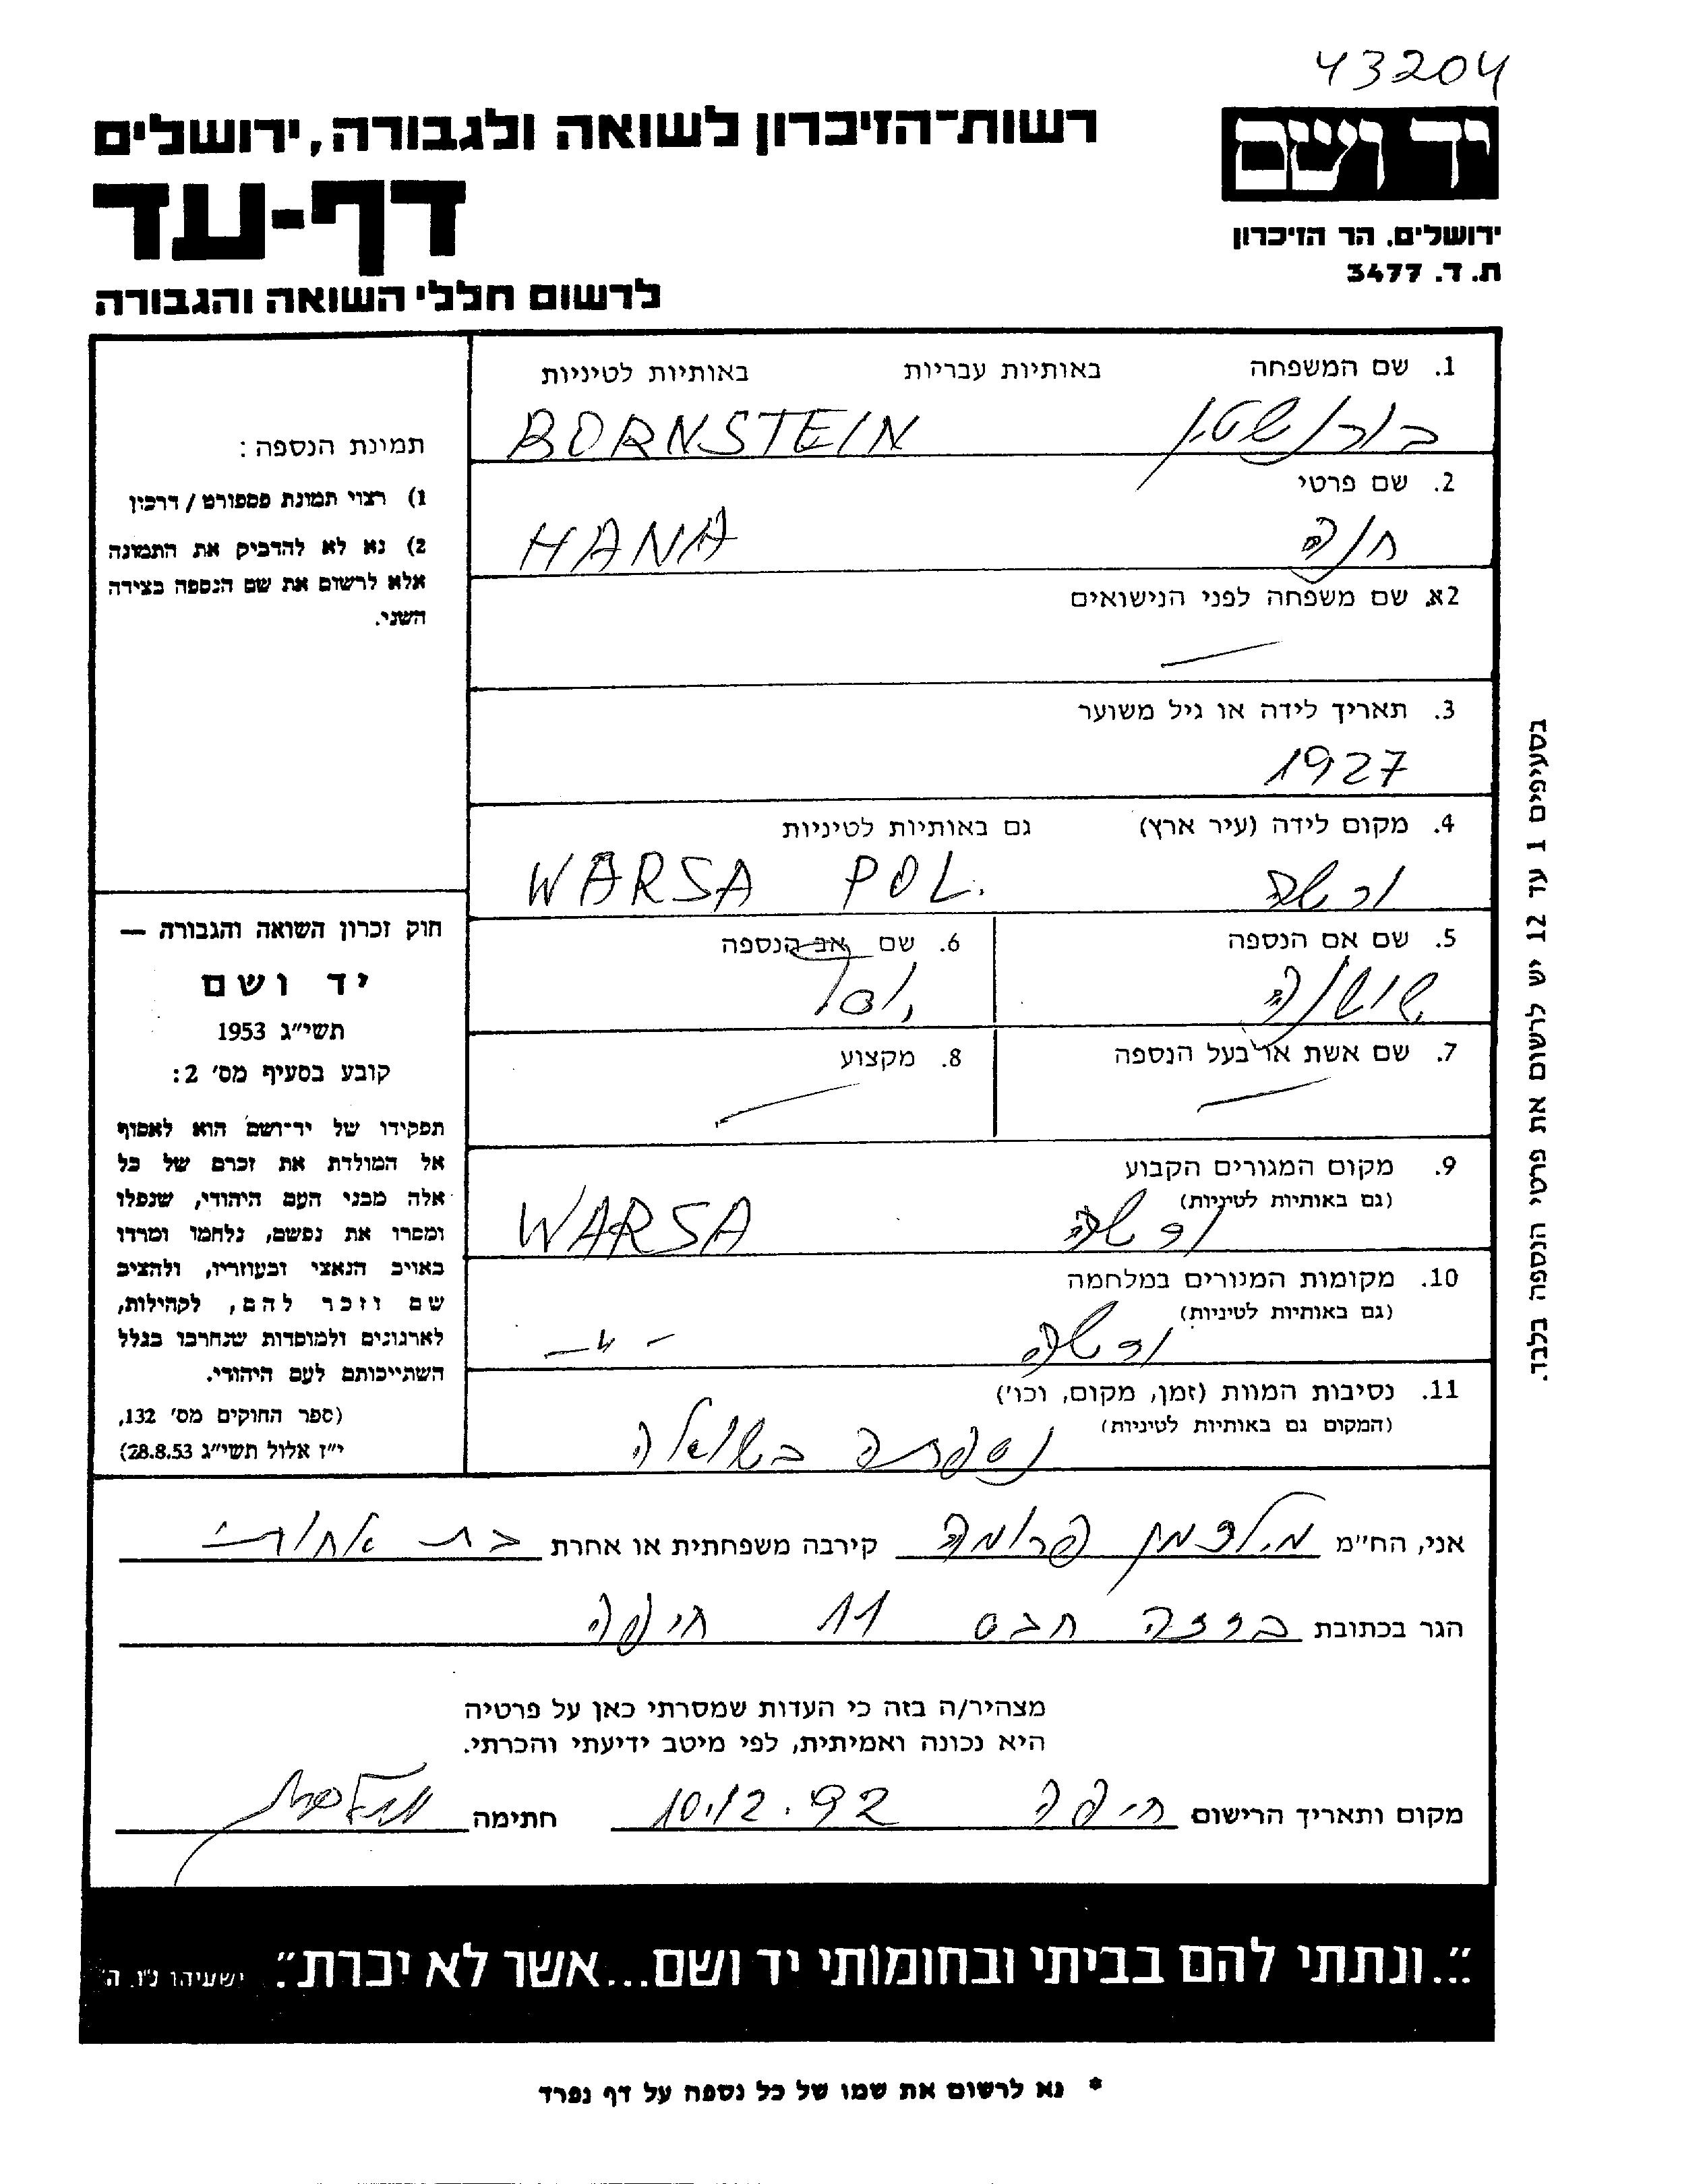 43204
יד ושם
רשות-הזיכרון לשואה ולגבורה, ירושלים
דף-עד
ירושלים, הר הזיכרון
ת. ד. 3477
לרשום חללי השואה והגבורה
1. שם המשפחה באותיות עבריות באותיות לטיניות
בורנשטין BORNSTEIN
2. שם פרטי
חנה HANA
2א. שם משפחה לפני הנישואים
—
3. תאריך לידה או גיל משוער
1927
4. מקום לידה (עיר ארץ) גם באותיות לטיניות
ורשה WARSA POL.
5. שם אם הנספה 6. שם אב הנספה
שושנה יוסל
7. שם אשת או בעל הנספה 8. מקצוע
— —
9. מקום המגורים הקבוע
(גם באותיות לטיניות)
ורשה WARSA
10. מקומות המגורים במלחמה
(גם באותיות לטיניות)
ורשה — " —
11. נסיבות המוות (זמן, מקום, וכו')
(המקום גם באותיות לטיניות)
נספתה בשואה
תמונת הנספה:
1) רצוי תמונת פספורט / דרכון
2) נא לא להדביק את התמונה
אלא לרשום את שם הנספה בצידה
השני.
חוק זכרון השואה והגבורה —
יד ושם
תשי״ג 1953
קובע בסעיף מס׳ 2:
תפקידו של יד־ושם הוא לאסוף
אל המולדת את זכרם של כל
אלה מבני העם היהודי, שנפלו
ומסרו את נפשם, נלחמו ומרדו
באויב הנאצי ובעוזריו, ולהציב
שם וזכר להם, לקהילות,
לארגונים ולמוסדות שנחרבו בגלל
השתייכותם לעם היהודי.
(ספר החוקים מס׳ 132,
י״ז אלול תשי״ג 28.8.53)
בסעיפים 1 עד 12 יש לרשום את פרטי הנספה בלבד.
אני, הח״מ פרומה קירבה משפחתית או אחרת בת אחות
הגר בכתובת ברכה חבס 11 חיפה
מצהיר/ה בזה כי העדות שמסרתי כאן על פרטיה
היא נכונה ואמיתית, לפי מיטב ידיעתי והכרתי.
מקום ותאריך הרישום חיפה 10.12.92 חתימה
״...ונתתי להם בביתי ובחומותי יד ושם...אשר לא יכרת״. ישעיהו נ״ו. ה׳
* נא לרשום את שמו של כל נספה על דף נפרד